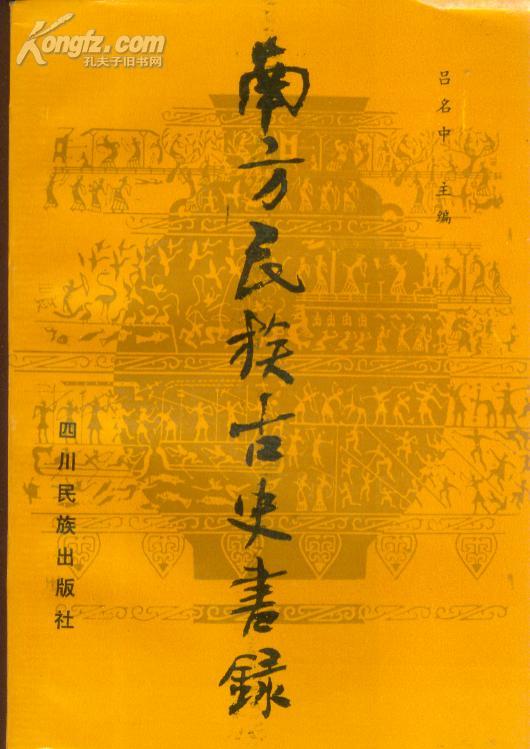 Kongfz.com
孔夫子旧书网
吕名中 主编
南方民族古史書録
四川民族出版社